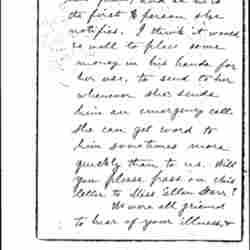 the first person she
notifies. I think it would
be well to place some
money in his hands for
her use, to send to her
whenever she sends
him an emergency call.
She can get word to
him sometimes more
quickly than to us. Will
you please pass on this
letter to Miss Ellen Starr?
We were all grieved
to hear of your illness, &